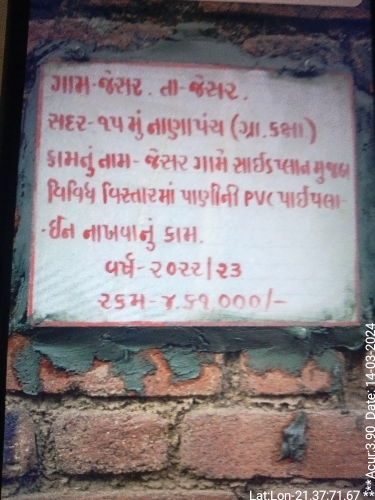 ગામ-જેસર. તા-જેસર.
સદર-૧૫ મું નાણાપંચ (ગ્રા.કક્ષા)
કામનું નામ- જેસર ગામે સાઈડપ્લાન મુજબ
વિવિધ વિસ્તારમાં પાણીની PVC પાઈપલા-
-ઈન નાખવાનું કામ.
વર્ષ-૨૦૨૨/૨૩
રકમ-૪.૬૧ ૦૦૦/-
Lat:Lon-21.37:71.67
***Acur:3.90 Date: 14-03-2024